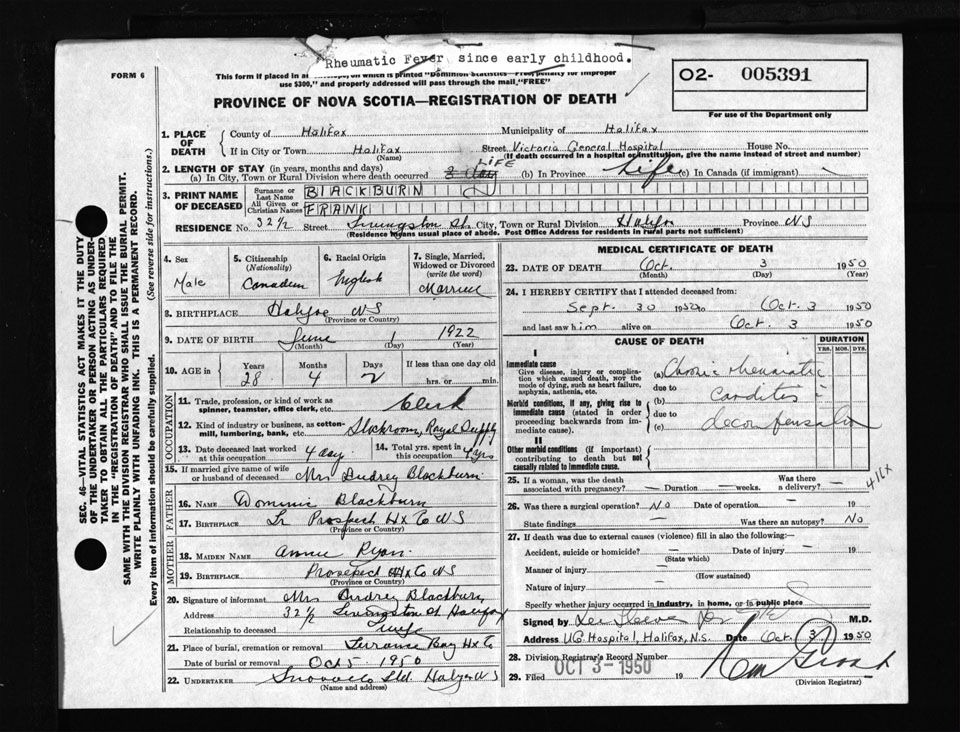 Rheumatic Fever since early childhood.
FORM 6
This form if placed in an envelope, on which is printed "Dominion Statistics—Free, penalty for improper
use $300," and properly addressed will pass through the mail "FREE"
PROVINCE OF NOVA SCOTIA—REGISTRATION OF DEATH
O2- 005391
For use of the Department only
1. PLACE OF DEATH County of Halifax Municipality of Halifax
If in City or Town Halifax Street Victoria General Hospital House No.
(Name) (If death occurred in a hospital or institution, give the name instead of street and number)
2. LENGTH OF STAY (in years, months and days) LIFE
(a) In City, Town or Rural Division where death occurred (b) In Province Life (c) In Canada (if immigrant)
3. PRINT NAME OF DECEASED Surname or Last Name BLACKBURN
All Given or Christian Names FRANK
RESIDENCE No. 32½ Street Livingston St. City, Town or Rural Division Halifax Province NS
(Residence means usual place of abode. Post Office Address for residents in rural parts not sufficient)
4. Sex Male
5. Citizenship (Nationality) Canadian
6. Racial Origin English
7. Single, Married, Widowed or Divorced (write the word) Married
8. BIRTHPLACE Halifax NS
(Province or Country)
9. DATE OF BIRTH June 1 1922
(Month) (Day) (Year)
10. AGE in Years 28 Months 4 Days 2 If less than one day old
hrs. or min.
OCCUPATION
11. Trade, profession, or kind of work as spinner, teamster, office clerk, etc. Clerk
12. Kind of industry or business, as cotton-mill, lumbering, bank, etc. Stockroom, Royal Supply
13. Date deceased last worked at this occupation 4 day. 14. Total yrs. spent in this occupation yrs
15. If married give name of wife or husband of deceased Mrs Audrey Blackburn
FATHER
16. NAME Dominic Blackburn
17. BIRTHPLACE Prospect Hx Co NS
(Province or Country)
MOTHER
18. MAIDEN NAME Annie Ryan.
19. BIRTHPLACE Prospect Hx Co NS
(Province or Country)
20. Signature of informant Mrs Audrey Blackburn
Address 32½ Livingston St Halifax
Relationship to deceased Wife
21. Place of burial, cremation or removal Terrance Bay Hx Co
Date of burial or removal Oct 5 1950
22. UNDERTAKER Snows Co Ltd. Halifax NS
(Name and address)
MEDICAL CERTIFICATE OF DEATH
23. DATE OF DEATH Oct. 3 1950
(Month) (Day) (Year)
24. I HEREBY CERTIFY that I attended deceased from:
Sept. 30 1950 to Oct. 3 1950
and last saw him alive on Oct. 3 1950
CAUSE OF DEATH
DURATION
YRS. MOS. DYS.
I
Immediate cause
Give disease, injury or complication which caused death, NOT the mode of dying, such as heart failure, asphyxia, asthenia, etc.
(a) Chronic rheumatic
due to
Morbid conditions, if any, giving rise to immediate cause (stated in order proceeding backwards from immediate cause).
(b) carditis c̄
due to
(c) decompensation
II
Other morbid conditions (if important) contributing to death but not causally related to immediate cause.
416X
25. If a woman, was the death associated with pregnancy? — Duration — weeks. Was there a delivery? —
26. Was there a surgical operation? NO Date of operation — 19
State findings — Was there an autopsy? No
27. If death was due to external causes (violence) fill in also the following:—
Accident, suicide or homicide? — Date of injury — 19
(State which)
Manner of injury —
(How sustained)
Nature of injury —
Specify whether injury occurred in industry, in home, or in public place
Signed by M.D.
Address V.G. Hospital, Halifax, N.S. Date Oct. 3 1950
28. Division Registrar's Record Number
29. Filed OCT 3 - 1950 19
(Division Registrar)
SEC. 46—VITAL STATISTICS ACT MAKES IT THE DUTY
OF THE UNDERTAKER OR PERSON ACTING AS UNDER-
TAKER TO OBTAIN ALL THE PARTICULARS REQUIRED
IN THE "REGISTRATION OF DEATH" AND TO FILE THE
SAME WITH THE DIVISION REGISTRAR WHO SHALL ISSUE THE BURIAL PERMIT.
WRITE PLAINLY WITH UNFADING INK. THIS IS A PERMANENT RECORD.
Every item of information should be carefully supplied. (See reverse side for instructions.)